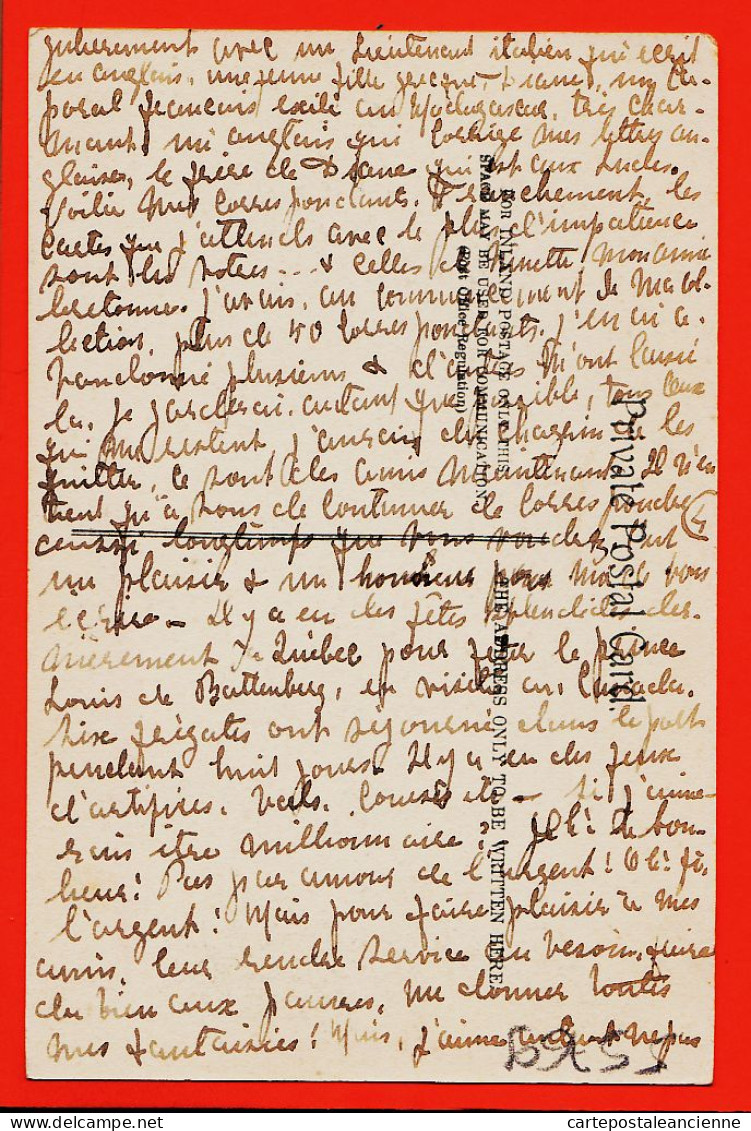 gulièrement avec un Lieutenant italien qui écrit
en anglais, une jeune fille grecque, Diane, un Ca-
poral français exilé au Madagascar, très char-
mant, un anglais qui corrige mes lettres an-
glaises, le frère de Diane qui est aux Indes.
Voilà mes correspondants. Franchement, les
cartes que j'attends avec le plus d'impatience
sont les vôtres --- & celles de Ninette mon amie
bretonne. J'avais, au commencement de ma col-
lection, plus de 40 correspondants. J'en ai a-
bandonné plusieurs & d'autres m'ont laissé
là. Je garderai, autant que possible, tous ceux
qui me restent, j'aurais du chagrin à les
quitter, ce sont des amis maintenant. Il n'en
tient qu'à vous de continuer de correspondre
aussi longtemps que vous voudrez, c'est
un plaisir & un honneur pour moi de vous
écrire — Il y a eu des fêtes splendides der-
nièrement à Québec pour fêter le prince
Louis de Battenberg, en visite au Canada.
Six frégates ont séjourné dans le port
pendant huit jours. Il y a eu des feux
d'artifices. Bals. Courses etc — Si j'aime-
rais être millionnaire? Oh! du bon-
heur! Pas par amour de l'argent! Oh! fi,
l'argent! Mais pour faire plaisir à mes
amis, leur rendre service au besoin, faire
du bien aux pauvres, me donner toutes
mes fantaisies! Mais, j'aime autant ne pas
Private Postal Card.
FOR INLAND POSTAGE ONLY THIS
SPACE MAY BE USED FOR COMMUNICATION
(Post Office Regulation)
THE ADDRESS ONLY TO BE WRITTEN HERE
cartepostaleancienne